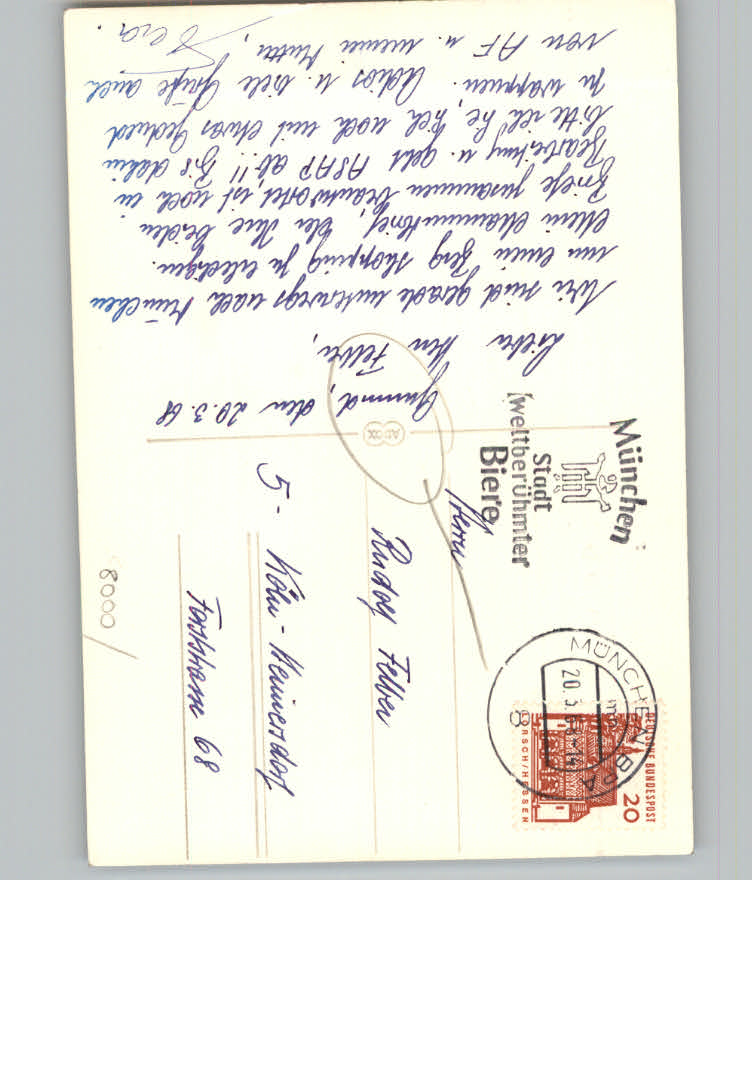 Gmund, den 20.3.68
Lieber Herr Felber,
Wir sind gerade unterwegs nach München
um einen Berg shopping zu erledigen.
Mein Mammutbrief, der Ihre beiden
Briefe zusammen beantwortet, ist noch in
Bearbeitung u. geht ASAP ab!! Bis dahin
bitte ich Sie, sich noch mit etwas Geduld
zu wappnen. Adios u. viele Grüße auch
von AF u. meiner Mutter,
Vera.
München
Stadt
weltberühmter
Biere
MÜNCHEN BPA
20.3.68-14
8
DEUTSCHE BUNDESPOST
20
LORSCH/HESSEN
Herrn
Rudolf Felber
5 - Köln-Weiversdorf
Forststrasse 68
8000